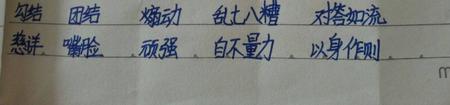 勾结 团结 煽动 乱七八糟 对答如流
慈详 嘴脸 顽强 自不量力 以身作则